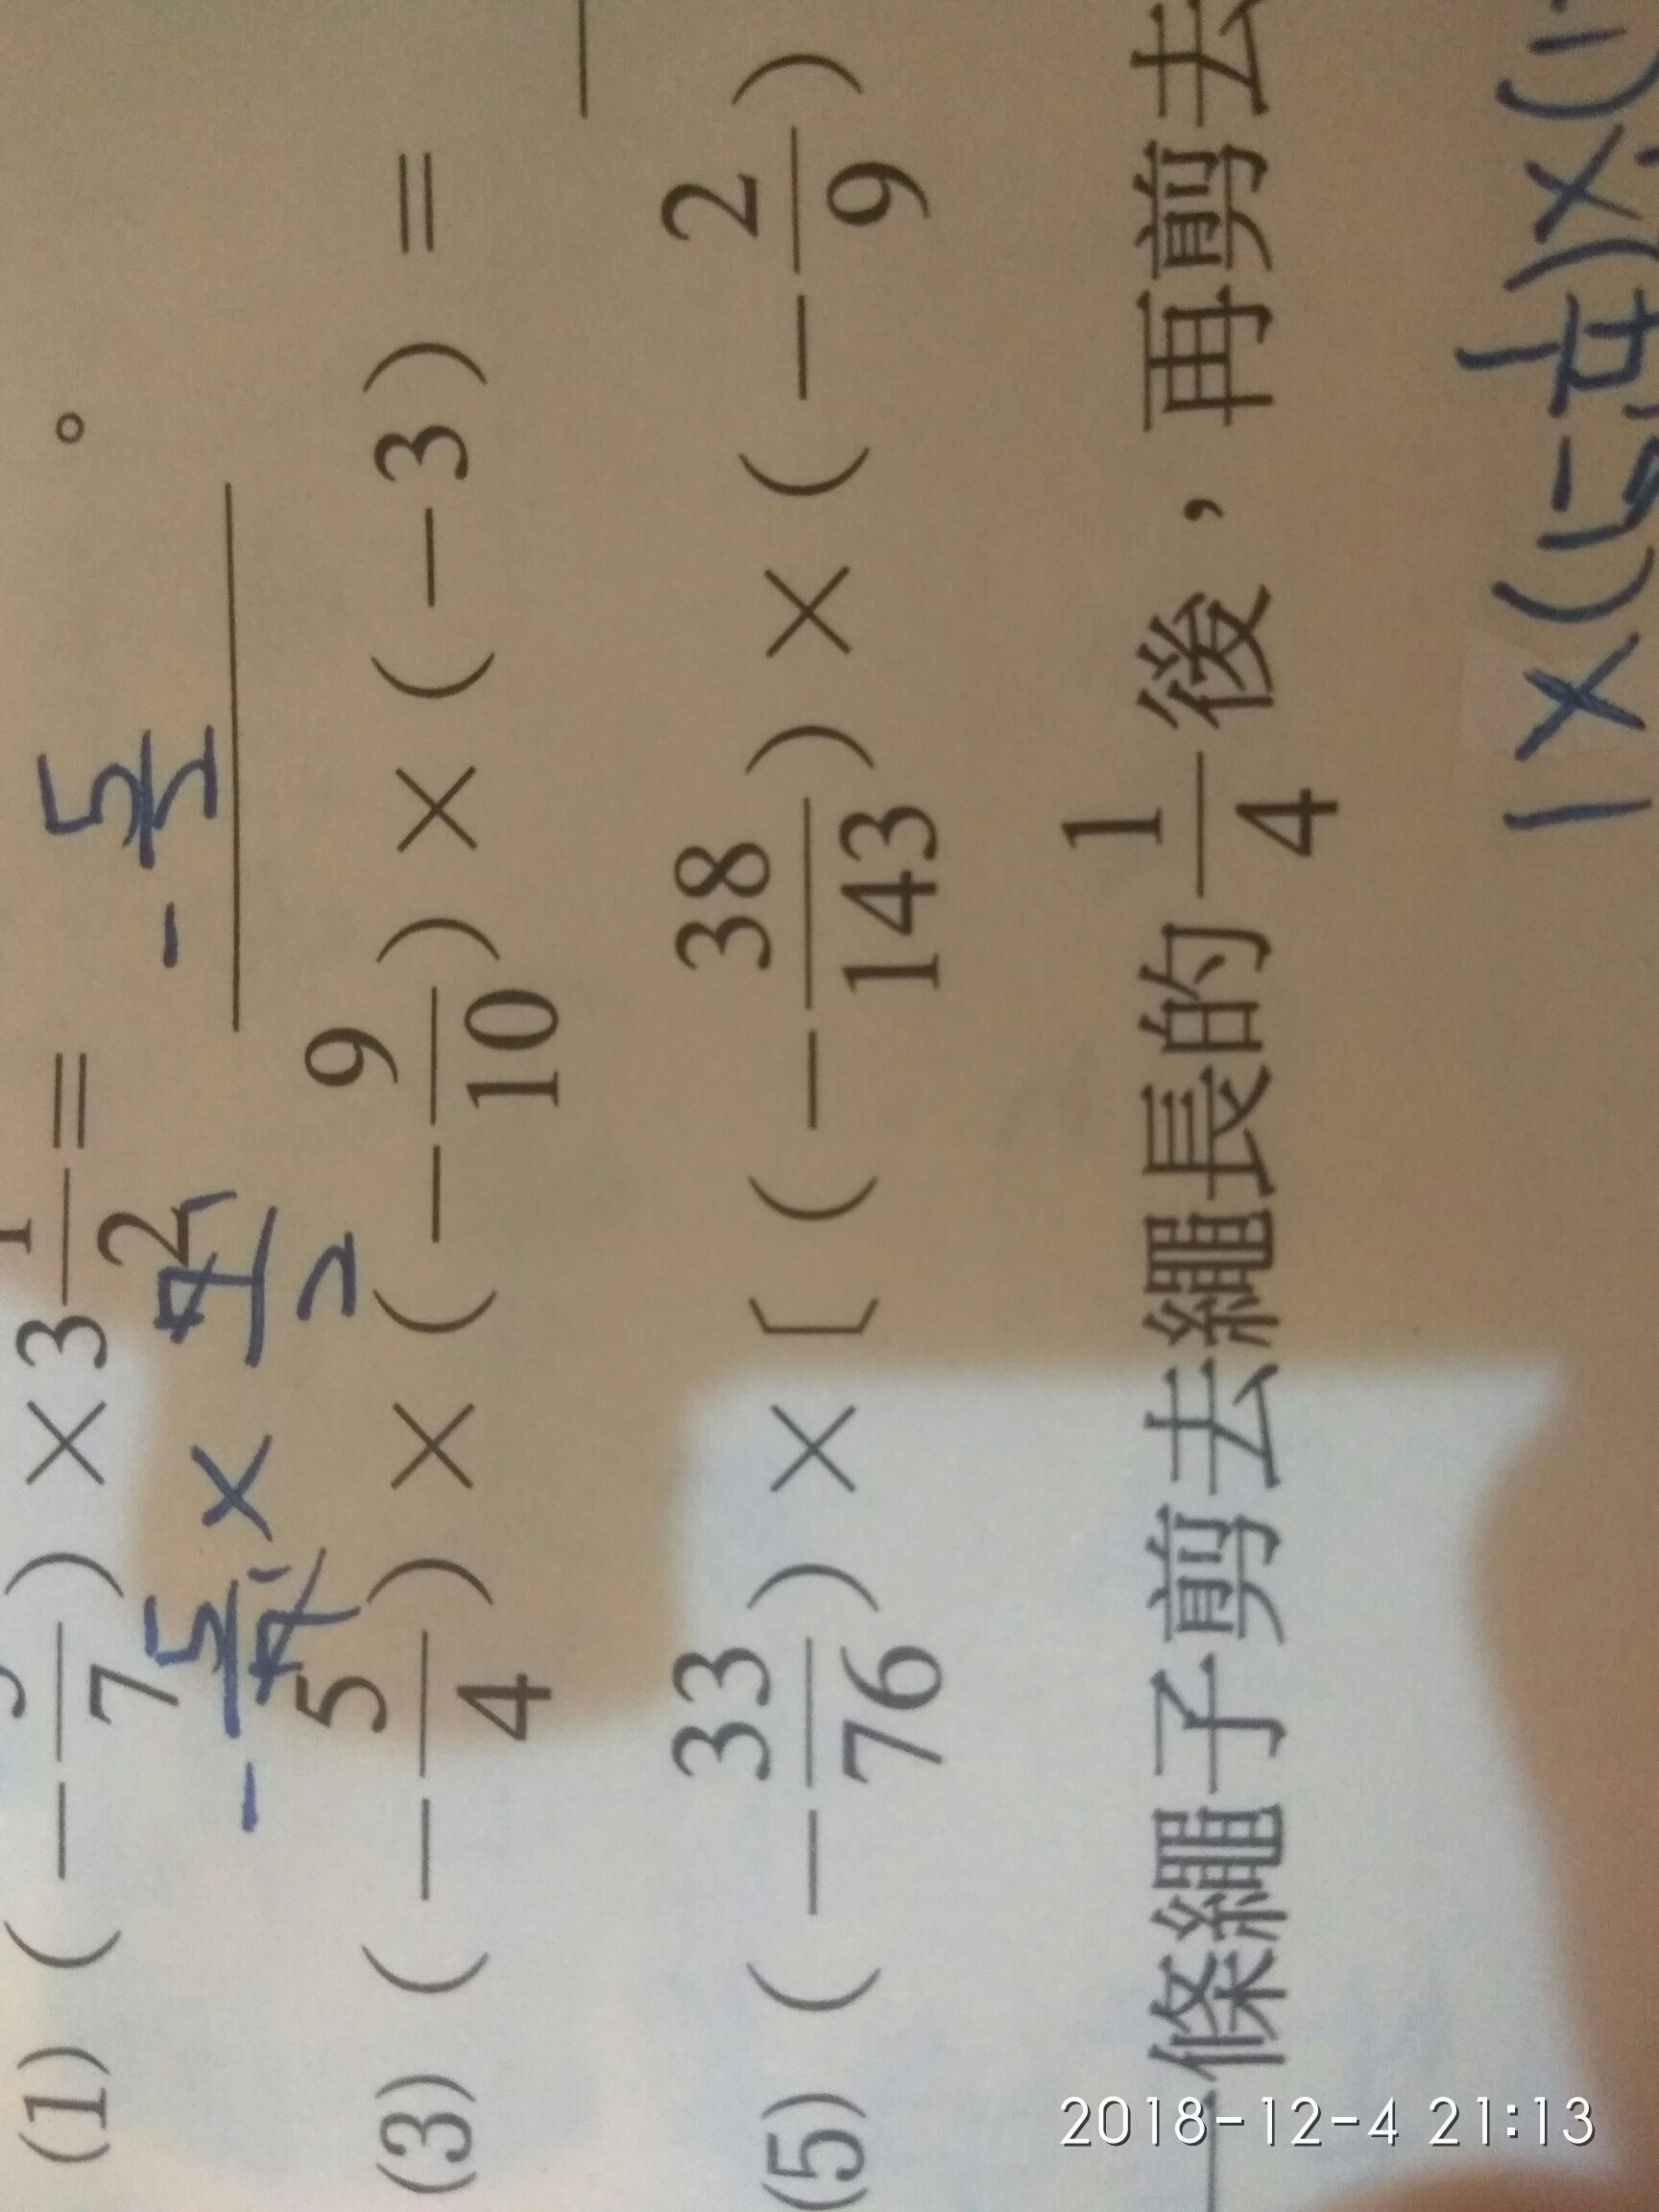 (1) (－5/7)×3 1/2＝ －5/2 。
－5/7 × 7/2
(3) (－5/4)×(－9/10)×(－3)＝
(5) (－33/76)×〔(－38/143)×(－2/9)
一條繩子剪去繩長的1/4後，再剪去
2018-12-4 21:13